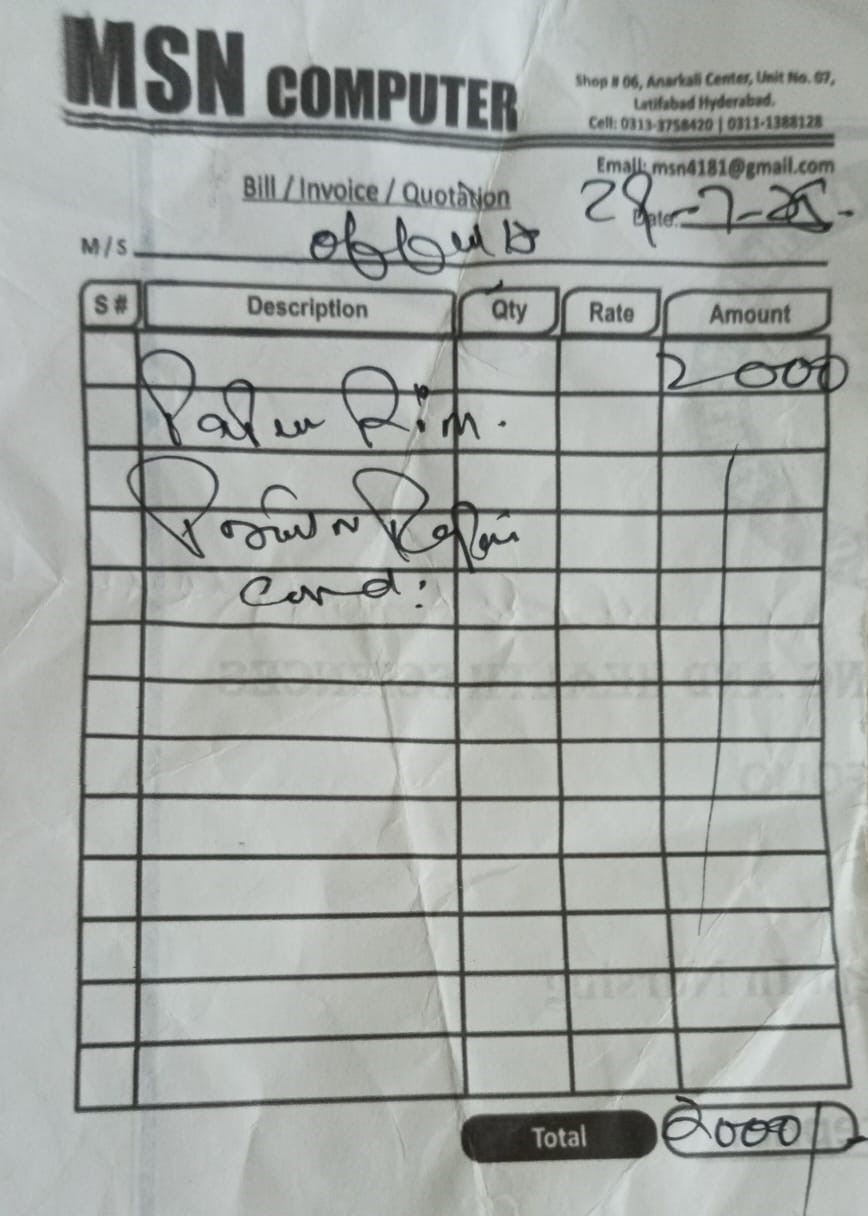 MSN COMPUTER
Shop # 06, Anarkali Center, Unit No. 07,
Latifabad Hyderabad.
Cell: 0313-3758420 | 0311-1388128
Email: msn4181@gmail.com
Bill / Invoice / Quotation
Date: 29-7-25
M/S
S # Description Qty Rate Amount
2000
Paper Rim.
Card:
Total 2000